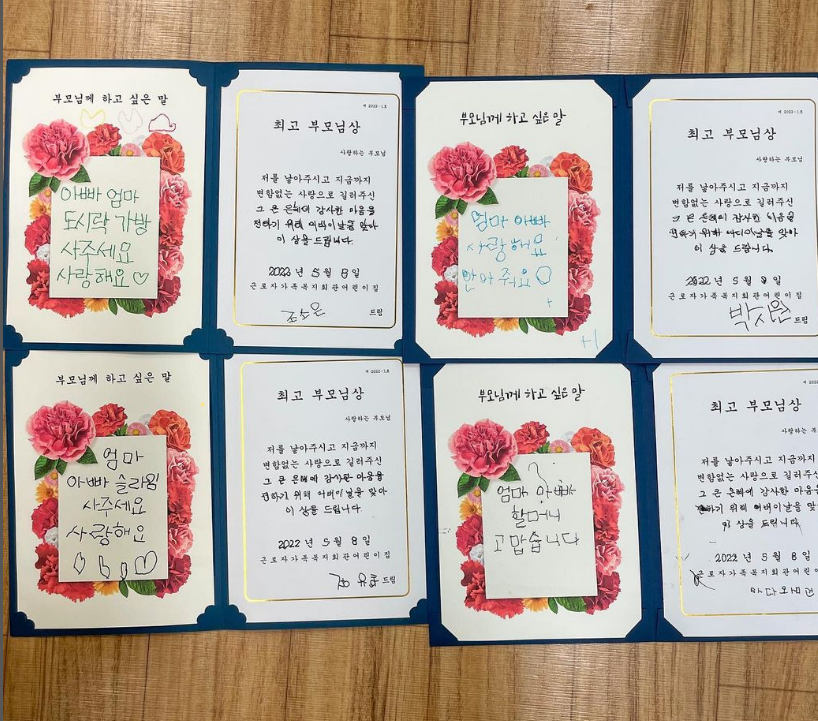 부모님께 하고 싶은 말
아빠 엄마
도시락 가방
사주세요
사랑해요♡
제 2022-1호
최고 부모님상
사랑하는 부모님
저를 낳아주시고 지금까지
변함없는 사랑으로 길러주신
그 큰 은혜에 감사한 마음을
전하기 위해 어버이날을 맞아
이 상을 드립니다.
2022 년 5 월 8 일
근로자가족복지회관어린이집
드림
부모님께 하고 싶은 말
엄마 아빠
사랑해요
제 2022-1호
최고 부모님상
사랑하는 부모님
저를 낳아주시고 지금까지
변함없는 사랑으로 길러주신
그 큰 은혜에 감사한 마음을
전하기 위해 어버이날을 맞아
이 상을 드립니다.
2022 년 5 월 8 일
근로자가족복지회관어린이집
드림
부모님께 하고 싶은 말
엄마
아빠 슬라임
사주세요
사랑해요
제 2022-1호
최고 부모님상
사랑하는 부모님
저를 낳아주시고 지금까지
변함없는 사랑으로 길러주신
그 큰 은혜에 감사한 마음을
전하기 위해 어버이날을 맞아
이 상을 드립니다
2022 년 5 월 8 일
근로자가족복지회관어린이집
드림
부모님께 하고 싶은 말
엄마 아빠
할머니
고맙습니다
제 2022-1
최고 부모님상
사랑하는 부
저를 낳아주시고 지금까지
변함없는 사랑으로 길러주신
그 큰 은혜에 감사한 마음을
전하기 위해 어버이날을 맞
이 상을 드립니다
2022 년 5 월 8 일
근로자가족복지회관어린이